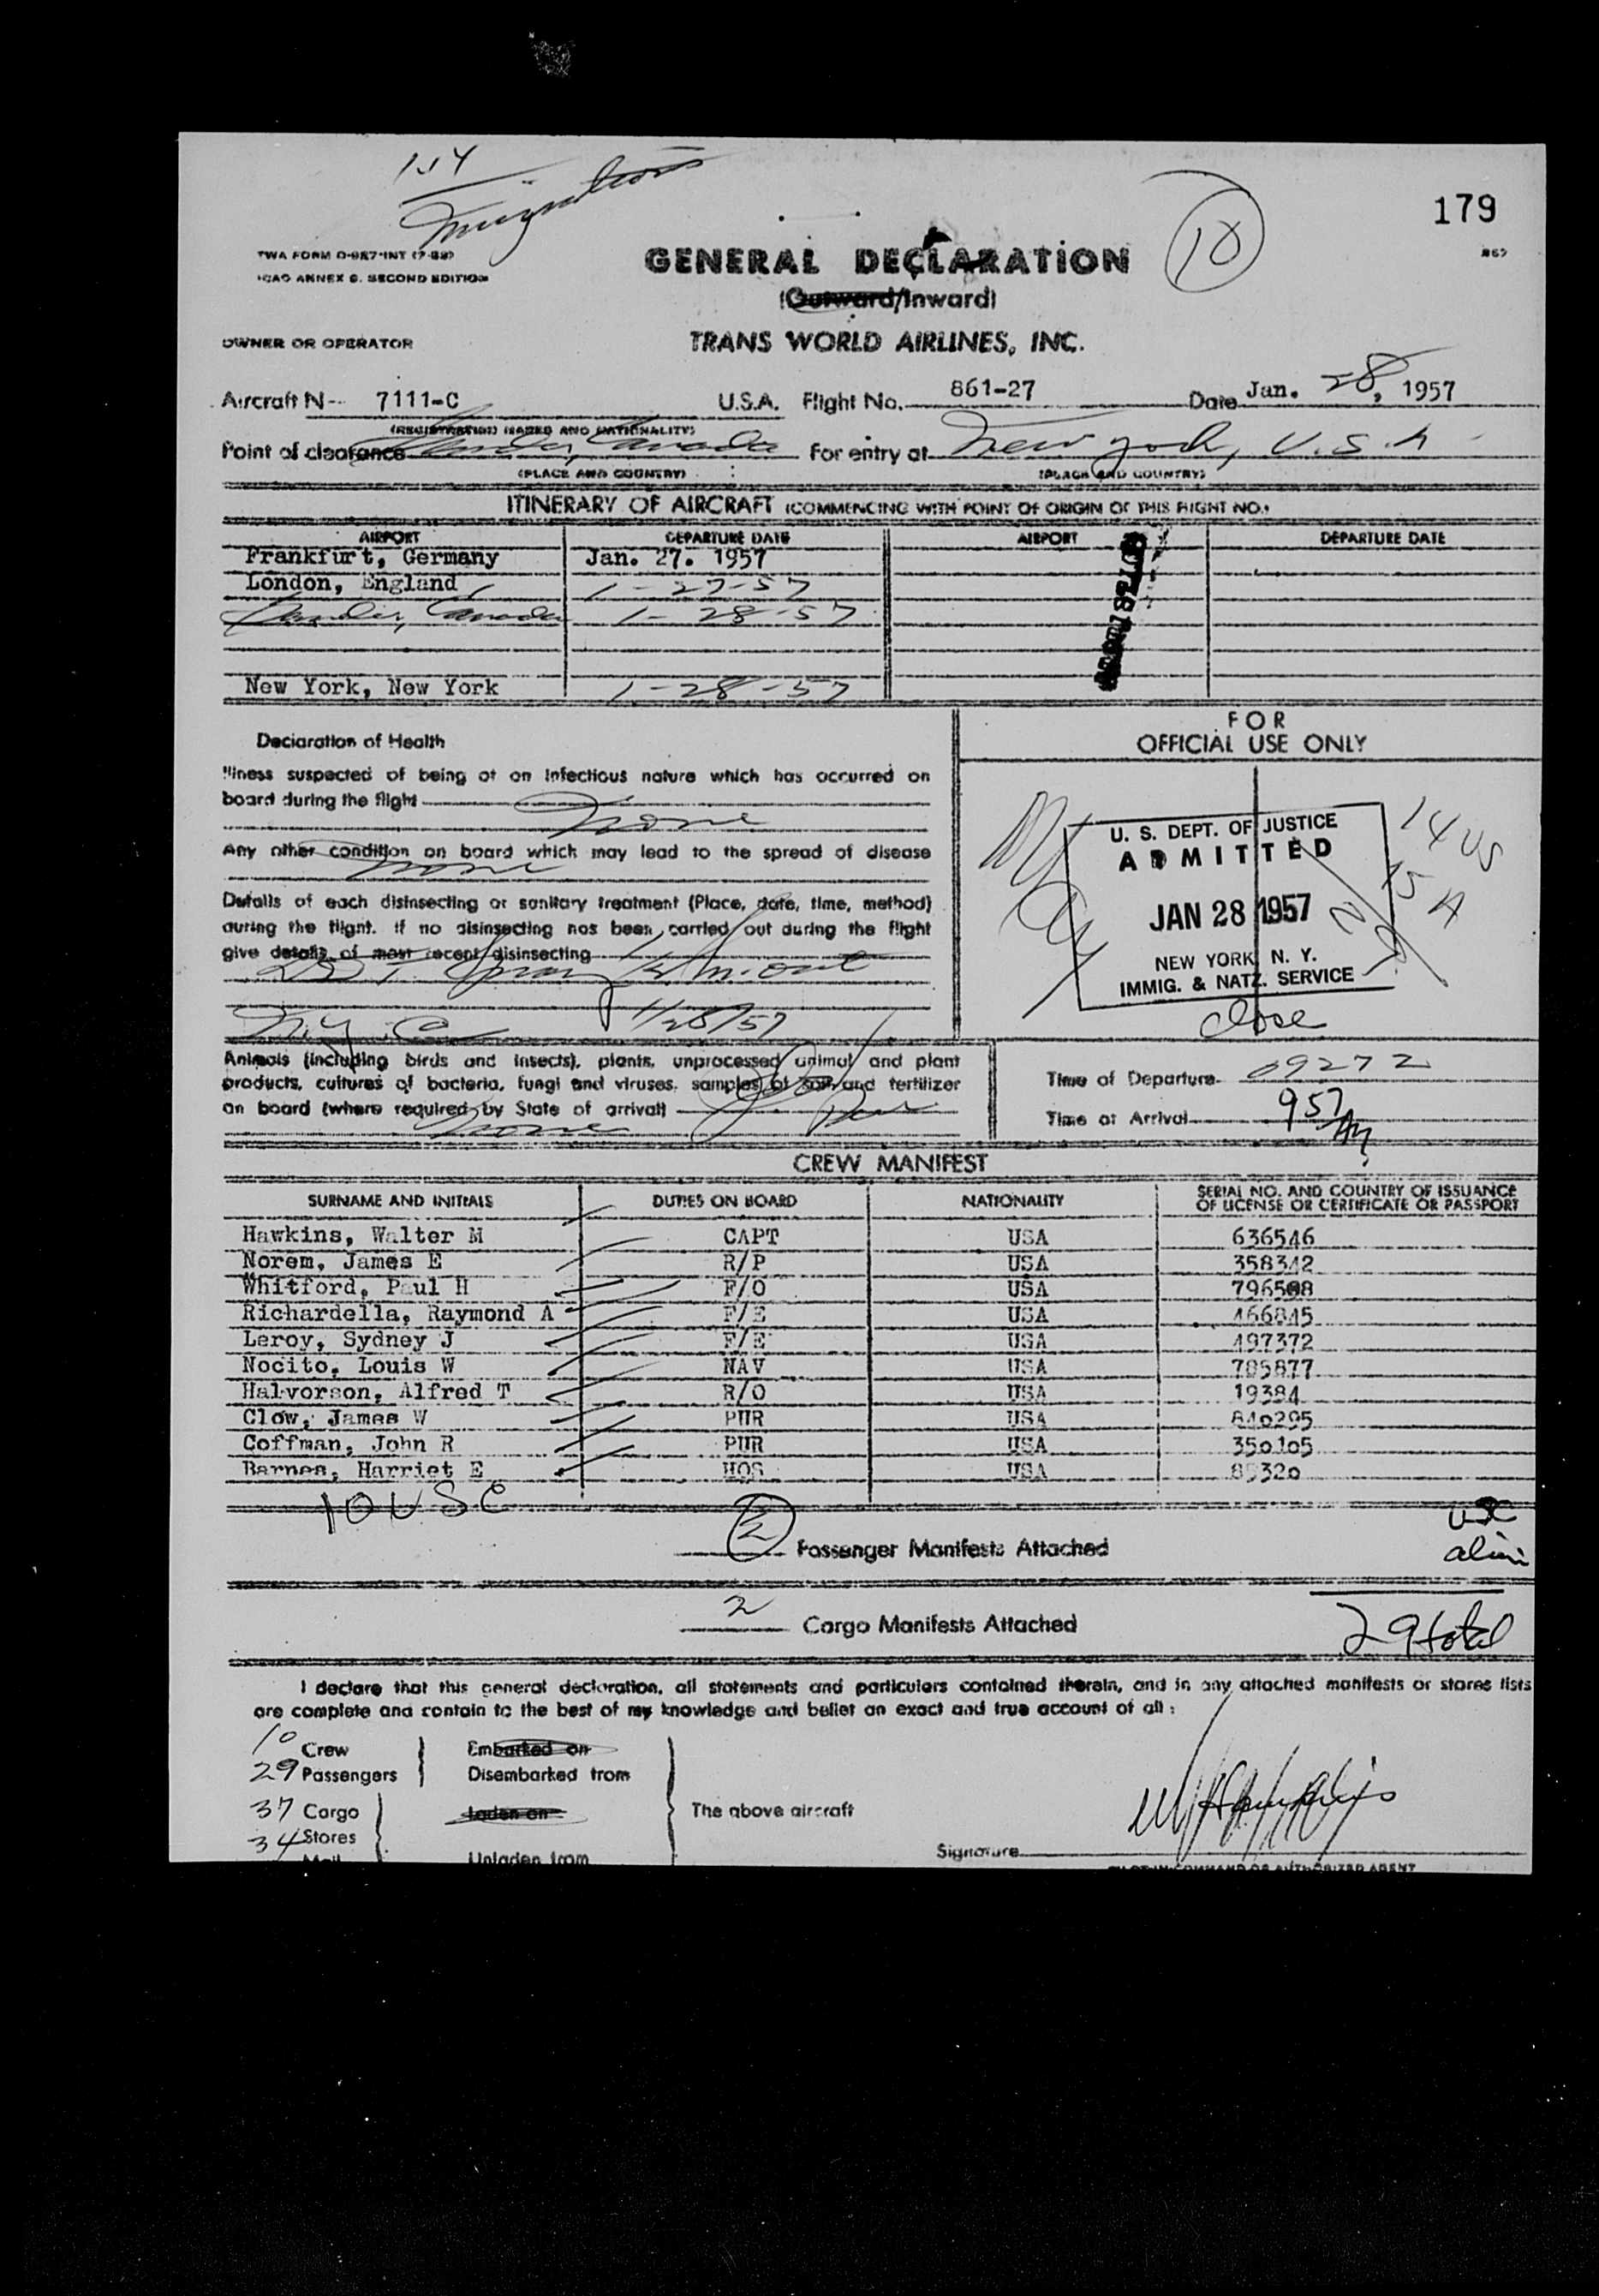 179
Immigration
10
TWA FORM O-987-INT (7-55)
ICAO ANNEX 9. SECOND EDITION
GENERAL DECLARATION
(Outward/Inward)
OWNER OR OPERATOR TRANS WORLD AIRLINES, INC.
Aircraft N-- 7111-C U.S.A. Flight No. 861-27 Date Jan. 28, 1957
(REGISTRATION MARKS AND NATIONALITY)
Point of clearance Gander, Canada For entry at New York, U.S.A.
(PLACE AND COUNTRY) (PLACE AND COUNTRY)
ITINERARY OF AIRCRAFT (COMMENCING WITH POINT OF ORIGIN OF THIS FLIGHT NO.)
AIRPORT DEPARTURE DATE AIRPORT DEPARTURE DATE
Frankfurt, Germany Jan. 27. 1957
London, England 1-27-57
Gander, Canada 1-28-57
New York, New York 1-28-57
Declaration of Health
Illness suspected of being of an infectious nature which has occurred on
board during the flight
None
Any other condition on board which may lead to the spread of disease
None
Details of each disinsecting or sanitary treatment (Place, date, time, method)
during the flight. If no disinsecting has been carried out during the flight
give details of most recent disinsecting
1/28/57
Animals (including birds and insects), plants, unprocessed animal and plant
products, cultures of bacteria, fungi and viruses, samples of soil and fertilizer
on board (where required by State of arrival)
None
FOR
OFFICIAL USE ONLY
U. S. DEPT. OF JUSTICE
ADMITTED
JAN 28 1957
NEW YORK, N. Y.
IMMIG. & NATZ. SERVICE
14 US
15 A
29
close
Time of Departure 0927Z
Time of Arrival 957 AM
CREW MANIFEST
SURNAME AND INITIALS DUTIES ON BOARD NATIONALITY SERIAL NO. AND COUNTRY OF ISSUANCE
OF LICENSE OR CERTIFICATE OR PASSPORT
Hawkins, Walter M CAPT USA 636546
Norem, James E R/P USA 358342
Whitford, Paul H F/O USA 796508
Richardella, Raymond A F/E USA 466845
Leroy, Sydney J F/E USA 497372
Nocito, Louis W NAV USA 785877
Halvorson, Alfred T R/O USA 19384
Clow, James W PUR USA 840295
Coffman, John R PUR USA 350105
Barnes, Harriet E HOS USA 85320
10 USC
2 Passenger Manifests Attached
USC
alien
2 Cargo Manifests Attached
29 total
I declare that this general declaration, all statements and particulars contained therein, and in any attached manifests or stores lists
are complete and contain to the best of my knowledge and belief an exact and true account of all :
10 Crew Embarked on
29 Passengers Disembarked from
37 Cargo Laden on The above aircraft
34 Stores
Mail Unladen from
Signature
PILOT IN COMMAND OR AUTHORIZED AGENT